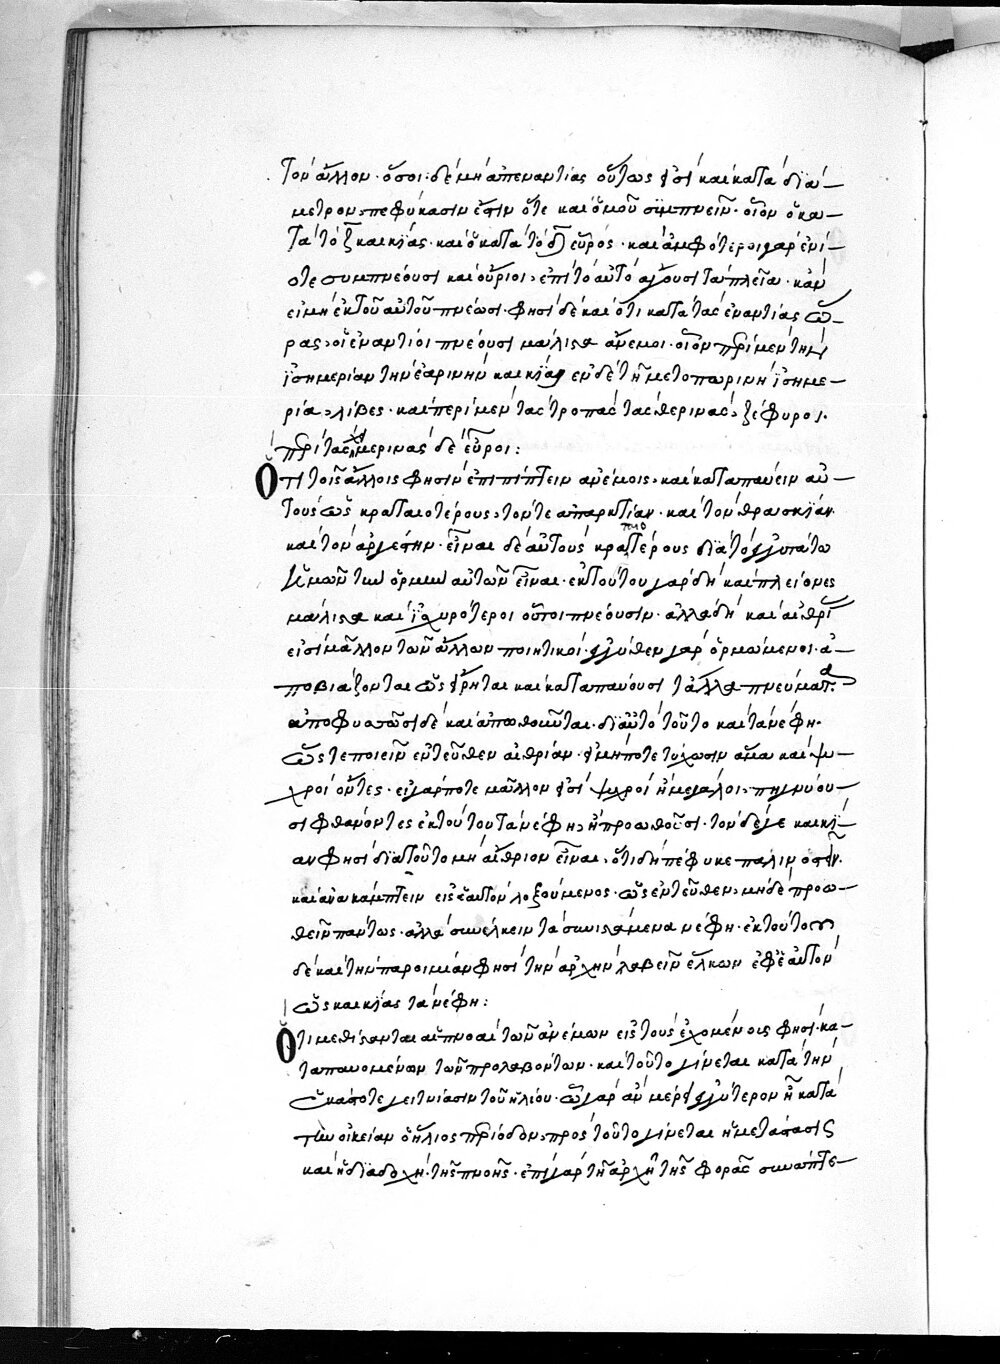 τὸν ἄλλον· ὅσοι δὲ μὴ ἀπεναντίας οὕτως εἰσὶ καὶ κατὰ διά-
μετρον, πεφύκασιν ἔστιν ὅτε καὶ ὁμοῦ συμπνεῖν· οἷον ὁ κα-
τὰ τὸ ξ καικίας· καὶ ὁ κατὰ τὸ δ εὖρος· καὶ ἀμφότεροι γὰρ ἐνί-
οτε συμπνέουσι καὶ οὔριοι, ἐπὶ τὸ αὐτὸ ἄγουσι τὰ πλεῖα· κἂν
εἰ μὴ ἐκ τοῦ αὐτοῦ πνέωσι· φησὶ δὲ καὶ ὅτι κατὰ τὰς ἐναντίας ὥ-
ρας, οἱ ἐναντίοι πνέουσι μάλιστα ἄνεμοι· οἷον περὶ μὲν τὴν
ἰσημερίαν τὴν ἐαρινὴν καικίας ἐν δὲ τῇ μετοπωρινῇ ἰσημε-
ρία, λίβες· καὶ περὶ μὲν τὰς τροπὰς τὰς θερινάς, ζέφυροι·
περὶ τὰς χειμερινὰς δὲ εὖροι:
Ὅτι τοῖς ἄλλοις φησὶν ἐπιπίπτειν ἀνέμοις, καὶ καταπαύειν αὐ-
τοὺς ὡς κραταιοτέρους, τόν τε ἀπαρκτίαν· καὶ τὸν θρασκίαν·
καὶ τὸν ἀργέστην· εἶναι δὲ αὐτοὺς κρατερους διὰ τὸ ἐγγυτάτω
ἡμῶν τὴν ὁρμὴν αὐτῶν εἶναι· ἐκ τούτου γὰρ δὴ καὶ πλείονες
μάλιστα καὶ ἰσχυρότεροι οὗτοι πνέουσιν· ἀλλὰ δὴ καὶ αἰθρί
εἰσὶ μᾶλλον τῶν ἄλλων ποιητικοί· ἐγγύθεν γὰρ ὁρμώμενοι· ἀ-
ποβιάζονται ὡς εἴρηται καὶ καταπαύουσι τἄλλα πνεύματα·
ἀποφυσῶσι δὲ καὶ ἀπωθοῦνται· διὰ αὐτὸ τοῦτο καὶ τὰ νέφη·
ὥστε ποιεῖν ἐντεῦθεν αἰθρίαν· εἰ μήποτε τύχωσιν ἅμα καὶ ψυ-
χροὶ ὄντες· εἰ γάρ ποτε μᾶλλον εἰσὶ ψυχροὶ ἢ μεγάλοι, πηγνύου-
σι φθάνοντες ἐκ τούτου τὰ νέφη, ἢ προωθοῦσι· τὸν δέ γε καικί-
αν φησὶ διὰ τοῦτο μὴ αἴθριον εἶναι, ὅτι δὴ πέφυκε πάλιν
καὶ ἀνακάμπτειν εἰς ἑαυτὸν λοξούμενος· ὡς ἐντεῦθεν, μηδὲ προω-
θεῖν πάντως· ἀλλὰ συνέλκειν τὰ συνιστάμενα νέφη· ἐκ τούτου
δὲ καὶ τὴν παροιμίαν φησὶ τὴν ἀρχὴν λαβεῖν ἕλκων ἐφ' ἑαυτὸν
ὡς καικίας τὰ νέφη:
Ὅτι μεθίστανται αἱ πνοαὶ τῶν ἀνέμων εἰς τοὺς ἐχομένους φησὶ· κα-
ταπαυομένων τῶν προλαβόντων· καὶ τοῦτο γίνεται κατὰ τὴν
ἑκάστοτε γειτνίασιν τοῦ ἡλίου· οὗ γὰρ ἂν μέρει ἐγγύτερον ᾖ κατὰ
τὴν οἰκείαν ὁ ἥλιος περίοδον, πρὸς τοῦτο γίνεται ἡ μετάστασις
καὶ ἡ διαδοχὴ τῆς πνοῆς· ἐπεὶ γὰρ τῇ ἀρχῇ τῆς φορᾶς συνάπτε-